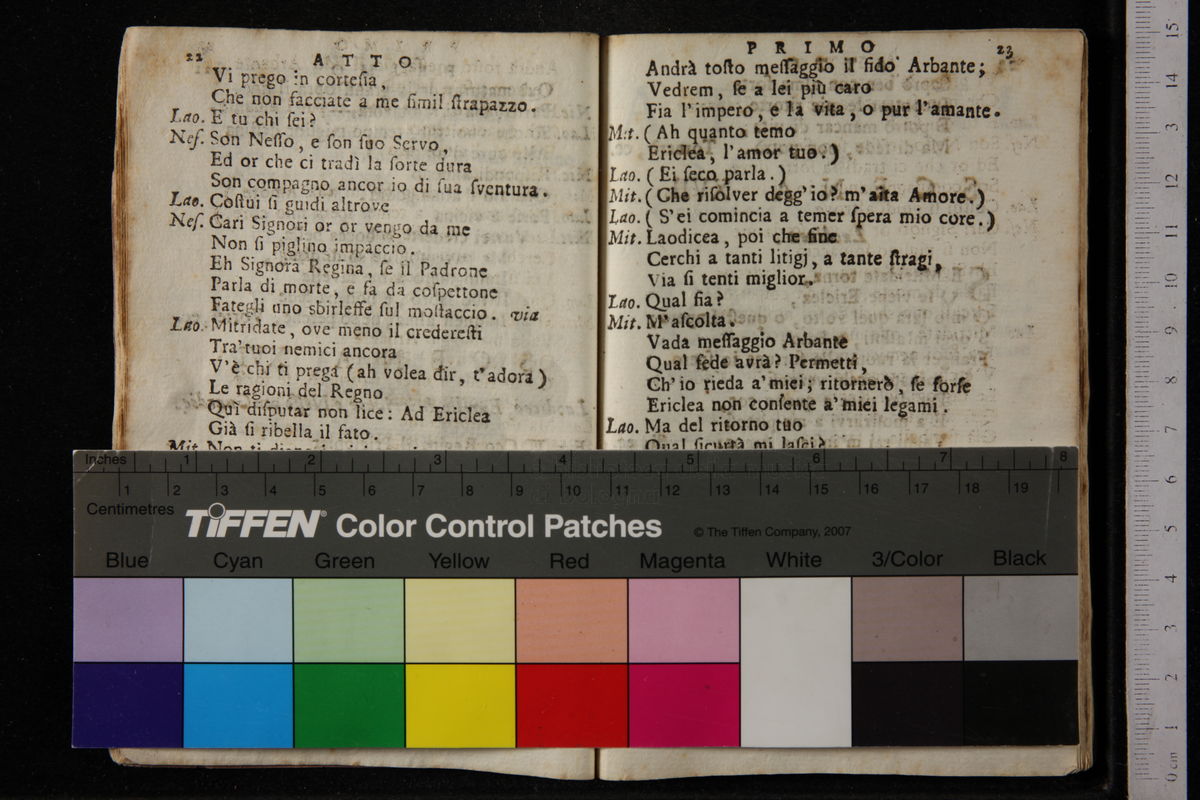 22 ATTO
Vi prego in cortesia,
Che non facciate a me simil strapazzo.
Lao. E tu chi sei?
Nes. Son Nesso, e son suo Servo,
Ed or che ci tradì la sorte dura
Son compagno ancor io di sua sventura.
Lao. Costui si guidi altrove
Nes. Cari Signori or or vengo da me
Non si piglino impaccio.
Eh Signora Regina, se il Padrone
Parla di morte, e fa da cospettone
Fategli uno sbirleffe sul mostaccio. via
Lao. Mitridate, ove meno il crederesti
Tra' tuoi nemici ancora
V'è chi ti prega (ah volea dir, t'adora)
Le ragioni del Regno
Quì disputar non lice: Ad Ericlea
Già si ribella il fato.
Mit. Non ti
PRIMO 23
Andrà tosto messaggio il fido Arbante;
Vedrem, se a lei più caro
Fia l'impero, e la vita, o pur l'amante.
Mit. (Ah quanto temo
Ericlea, l'amor tuo.)
Lao. (Ei seco parla.)
Mit. (Che risolver degg'io? m'aita Amore.)
Lao. (S'ei comincia a temer spera mio core.)
Mit. Laodicea, poi che fine
Cerchi a tanti litigj, a tante stragi,
Via si tenti miglior.
Lao. Qual fia?
Mit. M'ascolta.
Vada messaggio Arbante
Qual fede avrà? Permetti,
Ch'io rieda a' miei; ritornerò, se forse
Ericlea non consente a' miei legami.
Lao. Ma del ritorno tuo
Qual sicurtà mi lasci?
Inches 1 2 3 4 5 6 7 8
1 2 3 4 5 6 7 8 9 10 11 12 13 14 15 16 17 18 19
Centimetres
TIFFEN® Color Control Patches © The Tiffen Company, 2007
Blue Cyan Green Yellow Red Magenta White 3/Color Black
15 14 3 12 11 10 9 8 7 6 5 4 3 2 1 0 cm